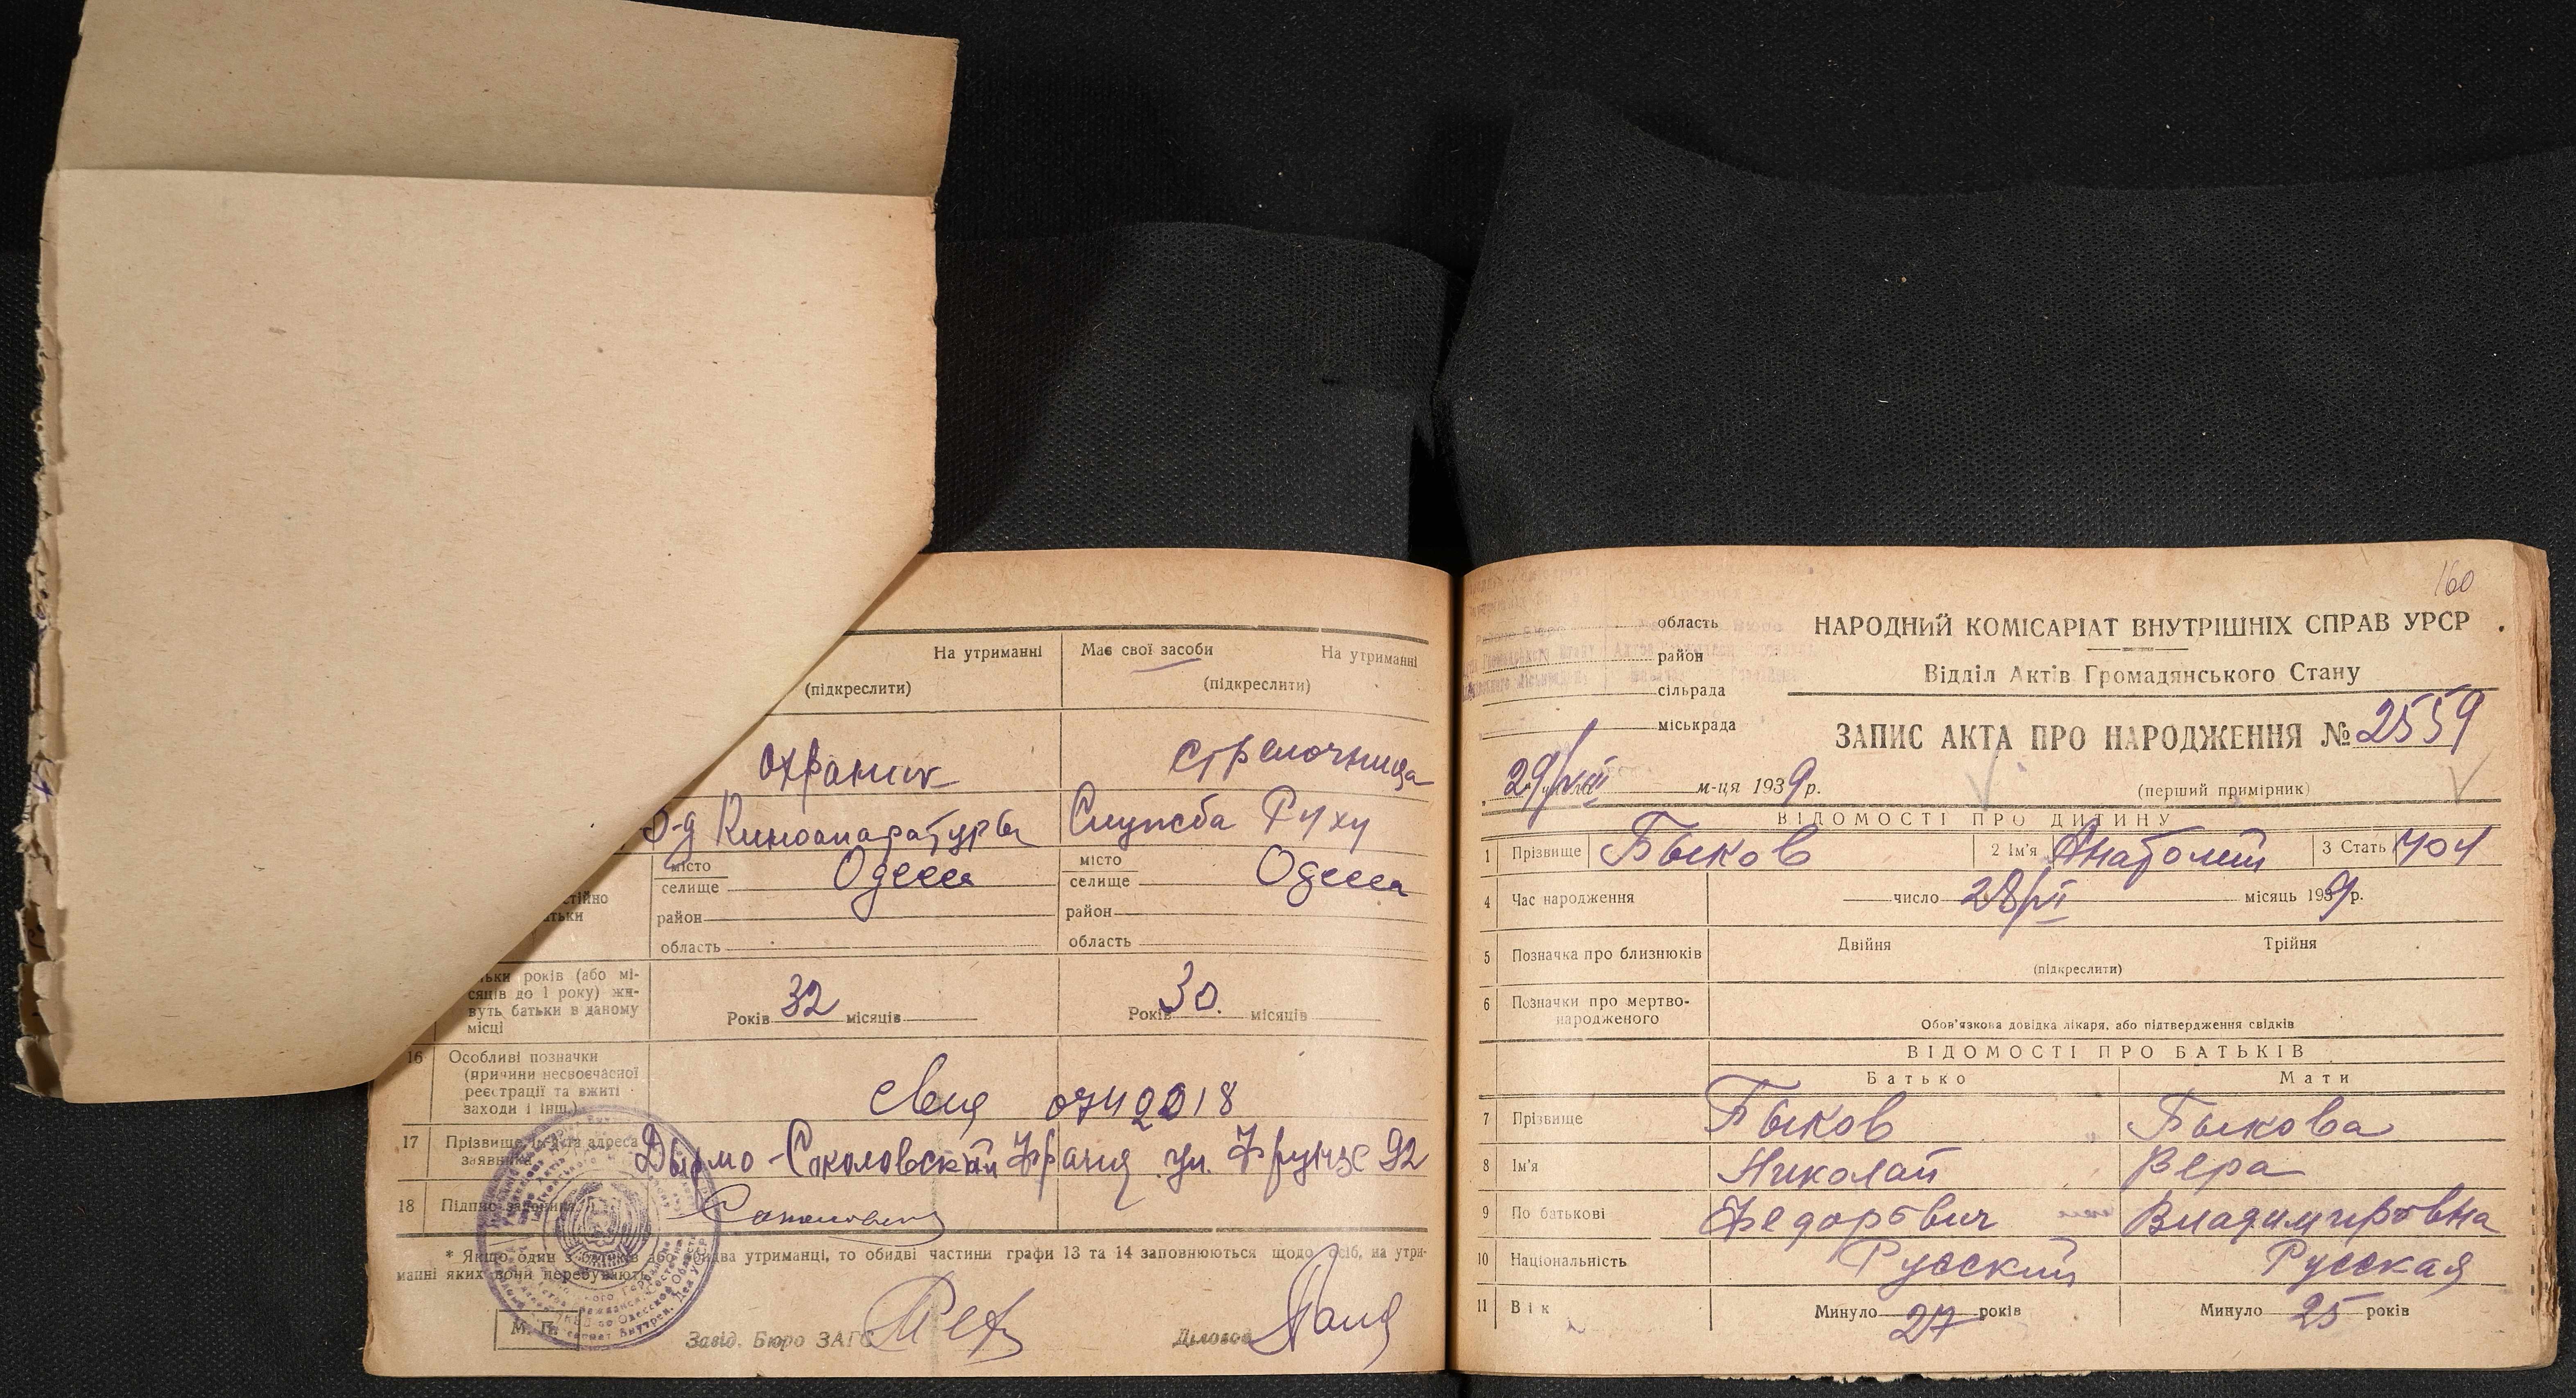 На утриманні
Має свої засоби
На утриманні
(підкреслити)
(підкреслити)
охраник
стрелочница
Киноапаратуры
Служба Руху
місто
селище
Одесса
місто
селище
Одесса
район
район
область
область
років (або мі-
сяців до 1 року) жи-
вуть батьки в даному
місці
Років 32 місяців
Років 30. місяців
16
Особливі позначки
(причини несвоєчасної
реєстрації та вжиті
заходи і інш.)
17
Прізвище, адреса
заявника
ул. Фрунзе 92
18
Підпис заявника
* Якщо один з або обидва утриманці, то обидві частини графи 13 та 14 заповнюються щодо осіб, на утри-
манні яких вони перебувають
М. П.
Завід. Бюро ЗАГС
Діловод
160
область
район
сільрада
міськрада
НАРОДНИЙ КОМІСАРІАТ ВНУТРІШНІХ СПРАВ УРСР
Відділ Актів Громадянського Стану
ЗАПИС АКТА ПРО НАРОДЖЕННЯ № 2559
29/VIII м-ця 1939 р.
(перший примірник)
ВІДОМОСТІ ПРО ДИТИНУ
1 Прізвище Быков 2 Ім'я Анатолий 3 Стать чол
4 Час народження число місяць 1939 р.
5 Позначка про близнюків Двійня Трійня
(підкреслити)
6 Позначки про мертво-
народженого
Обов'язкова довідка лікаря, або підтвердження свідків
ВІДОМОСТІ ПРО БАТЬКІВ
Батько Мати
7 Прізвище Быков Быкова
8 Ім'я Николай Вера
9 По батькові Федорович Владимировна
10 Національність Русский Русская
11 Вік Минуло 27 років Минуло 25 років